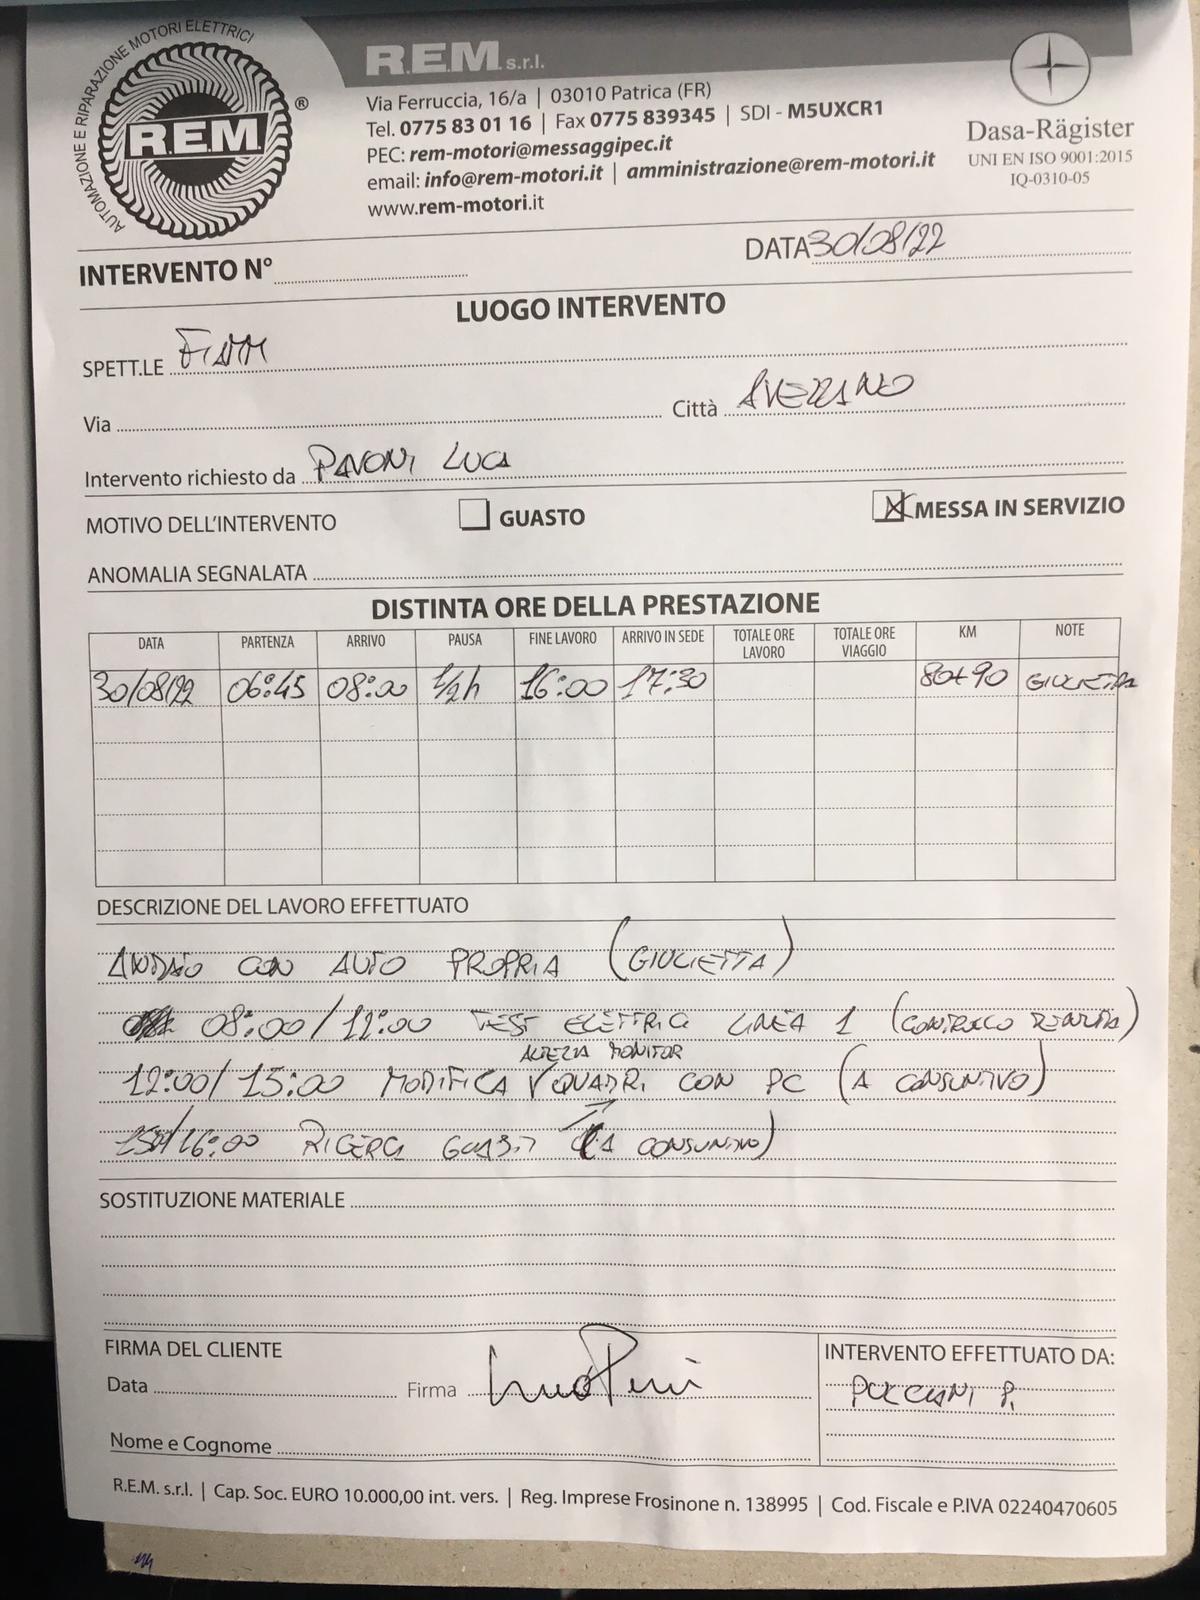 AUTOMAZIONE E RIPARAZIONE MOTORI ELETTRICI
R.E.M ®
R.E.M. s.r.l.
Via Ferruccia, 16/a | 03010 Patrica (FR)
Tel. 0775 83 01 16 | Fax 0775 839345 | SDI - M5UXCR1
PEC: rem-motori@messaggipec.it
email: info@rem-motori.it | amministrazione@rem-motori.it
www.rem-motori.it
Dasa-Rägister
UNI EN ISO 9001:2015
IQ-0310-05
INTERVENTO N° DATA 30/08/22
LUOGO INTERVENTO
SPETT.LE FIAMM
Via Città AVEZZANO
Intervento richiesto da PAVONI LUCA
MOTIVO DELL'INTERVENTO GUASTO X MESSA IN SERVIZIO
ANOMALIA SEGNALATA
DISTINTA ORE DELLA PRESTAZIONE
DATA PARTENZA ARRIVO PAUSA FINE LAVORO ARRIVO IN SEDE TOTALE ORE LAVORO TOTALE ORE VIAGGIO KM NOTE
30/08/22 06:45 08:00 1/2h 16:00 17:30 80+90 GIULIETTA
DESCRIZIONE DEL LAVORO EFFETTUATO
ANDATO CON AUTO PROPRIA (GIULIETTA)
08:00/12:00 TEST ELETTRICI LINEA 1
ALTEZZA MONITOR
12:00/15:00 MODIFICA QUADRI CON PC (A CONSUNTIVO)
/16:00 RICERCA GUASTI (A CONSUNTIVO)
SOSTITUZIONE MATERIALE
FIRMA DEL CLIENTE
Data Firma
Nome e Cognome
INTERVENTO EFFETTUATO DA:
P.
R.E.M. s.r.l. | Cap. Soc. EURO 10.000,00 int. vers. | Reg. Imprese Frosinone n. 138995 | Cod. Fiscale e P.IVA 02240470605